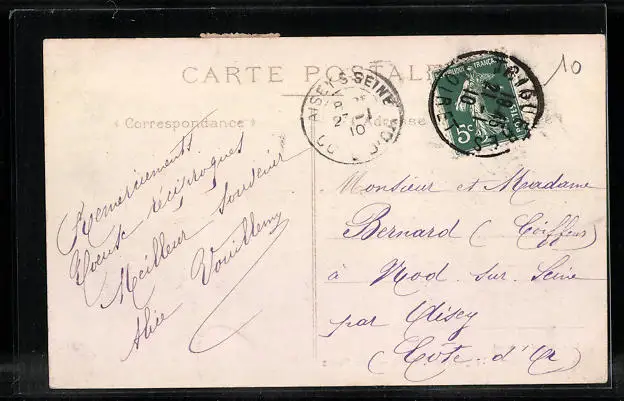 CARTE POSTALE
« Correspondance »
« Adresse
AISEY-S-SEINE
10
CÔTE-D'OR
5c
10
Remerciements
Voeux réciproques
Meilleur souvenir
Alice Vouillemy
Monsieur et Madame
Bernard (Coiffeur)
à Nod-sur-Seine
par Aisey
(Côte-d'Or)